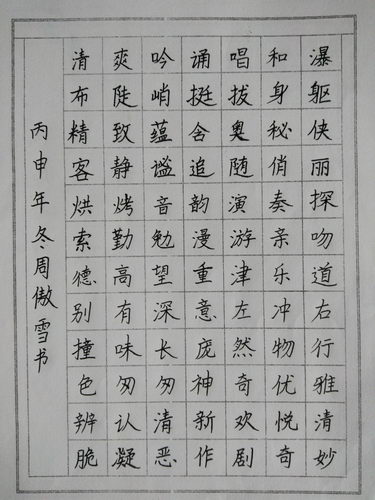 清爽吟诵唱和瀑
布陡峭挺拔身躯
精致蕴含奥秘侠
客静谧追随俏丽
烘烤音韵演奏探
索勤勉漫游亲吻
德高望重津乐道
别有深意左冲右
撞味长庞然物行
色匆匆神奇优雅
辨认清新欢悦清
脆凝恶作剧奇妙
丙申年冬周傲雪书